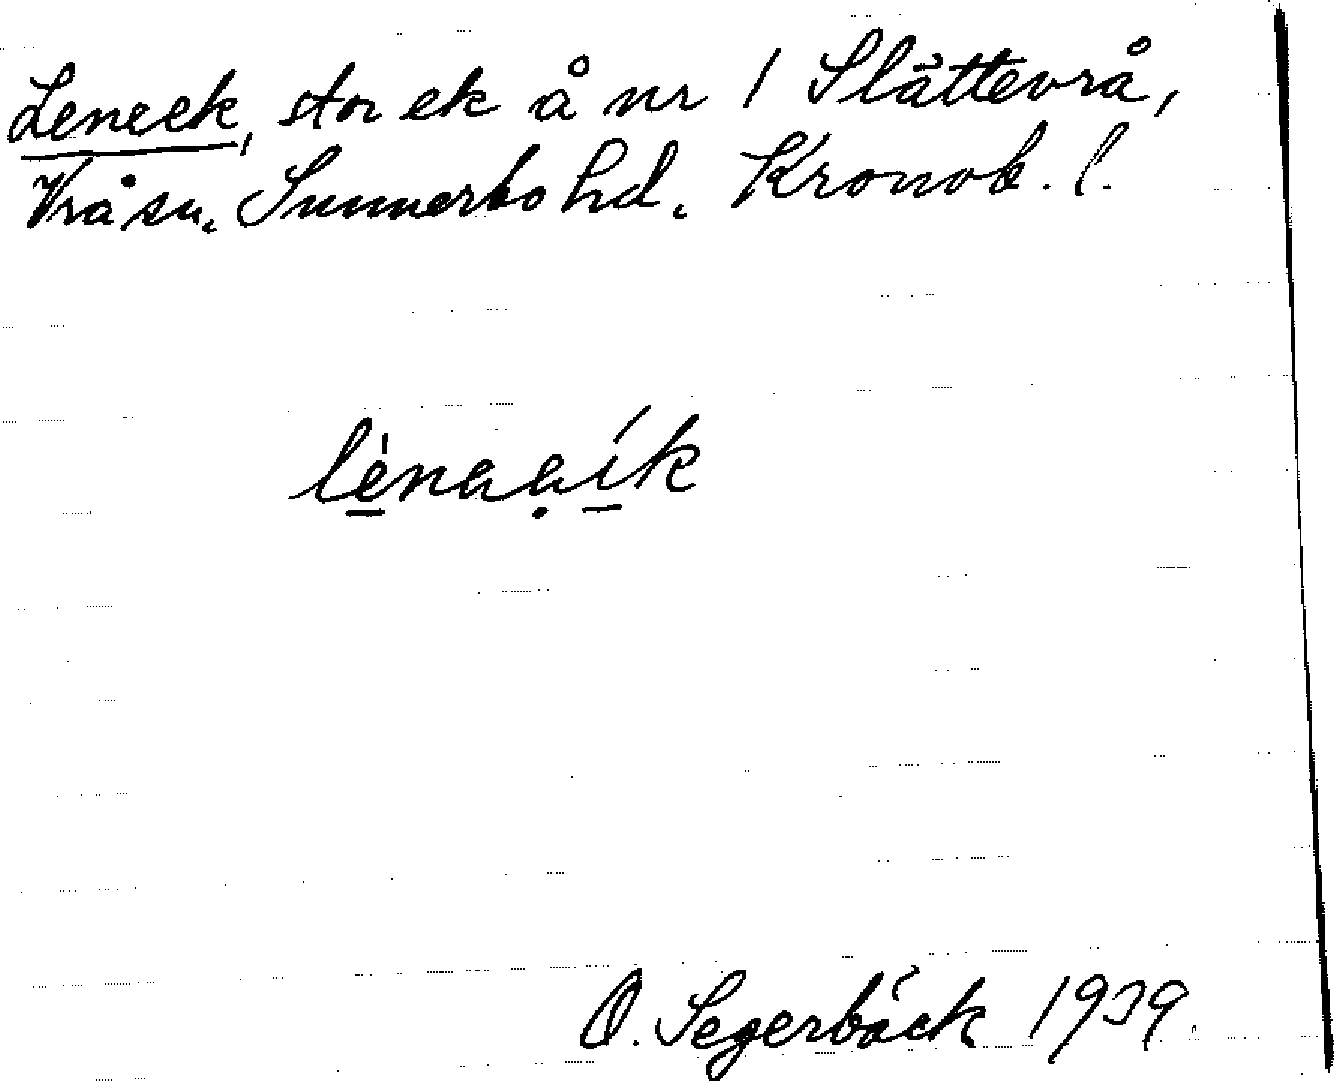 Leneek, stor ek å nr 1 Slättevrå,
Vrå sn. Sunnerbo hd. Kronob. l.
O. Segerbäck 1939.